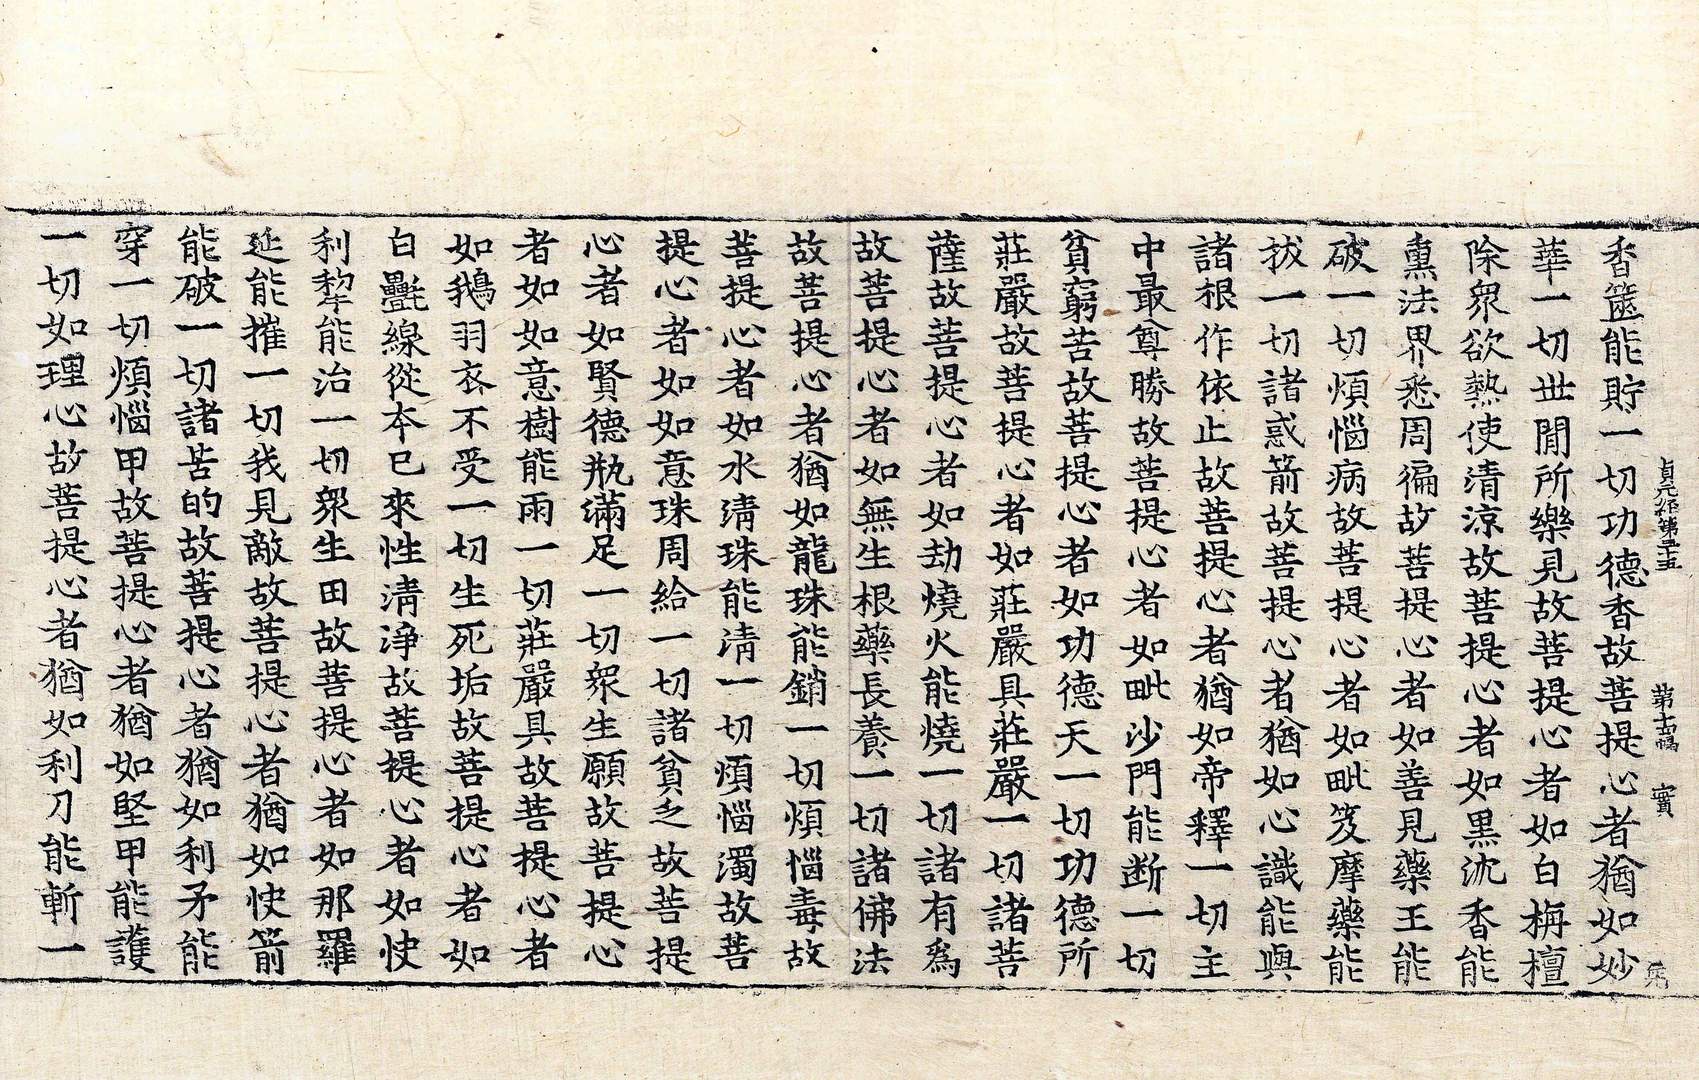 貞元經第三十五 實
香篋能貯一切功德香故菩提心者猶如妙
華一切世閒所樂見故菩提心者如白栴檀
除衆欲熱使清涼故菩提心者如黒沈香能
熏法界悉周徧故菩提心者如善見藥王能
破一切煩惱病故菩提心者如毗笈摩藥能
拔一切諸惑箭故菩提心者猶如心識能與
諸根作依止故菩提心者猶如帝釋一切主
中最尊勝故菩提心者如毗沙門能断一切
貧窮苦故菩提心者如功德天一切功德所
莊嚴故菩提心者如莊嚴具莊嚴一切諸菩
薩故菩提心者如劫燒火能燒一切諸有爲
故菩提心者如無生根藥長養一切諸佛法
故菩提心者猶如龍珠能銷一切煩惱毒故
菩提心者如水清珠能清一切煩惱濁故菩
提心者如如意珠周給一切諸貧乏故菩提
心者如賢德瓶滿足一切衆生願故菩提心
者如如意樹能雨一切莊嚴具故菩提心者
如鵝羽衣不受一切生死垢故菩提心者如
白氎線從本已來性清淨故菩提心者如快
利犂能治一切衆生田故菩提心者如那羅
延能摧一切我見敵故菩提心者猶如快箭
能破一切諸苦的故菩提心者猶如利矛能
穿一切煩惱甲故菩提心者猶如堅甲能護
一切如理心故菩提心者猶如利刀能斬一